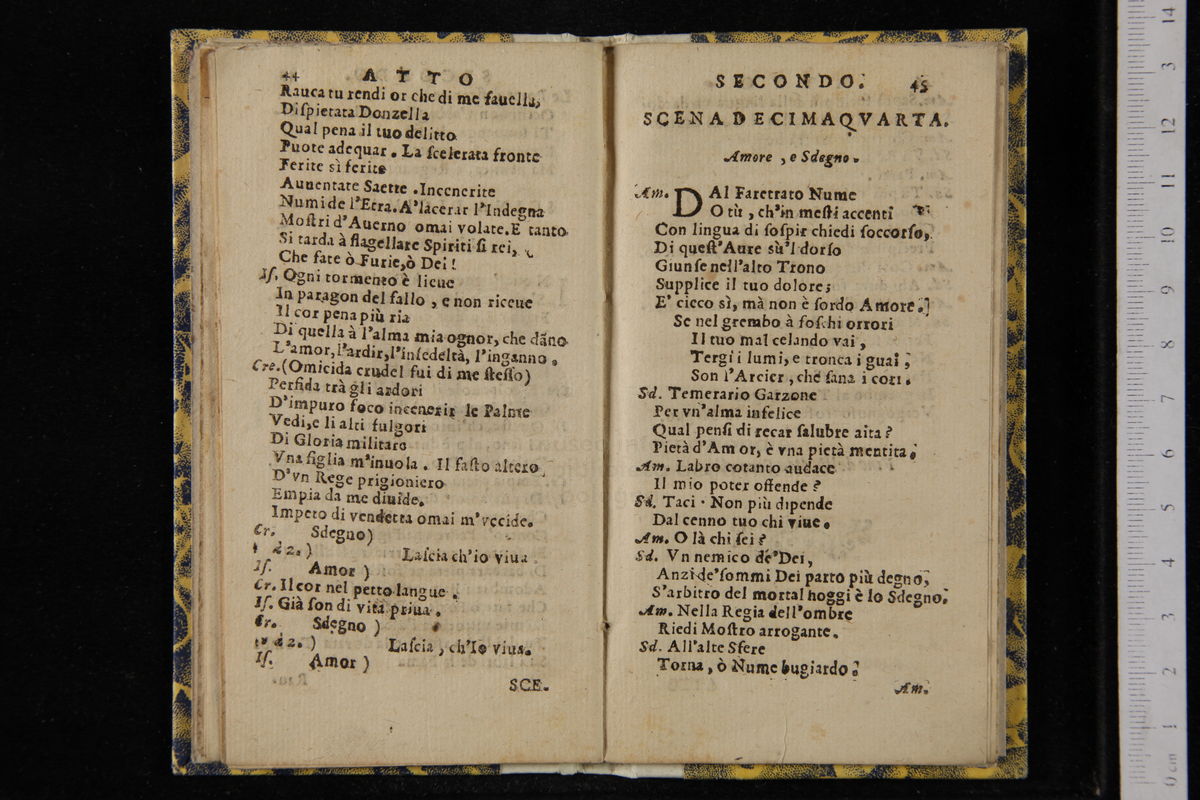 44 ATTO
Rauca tu rendi or che di me fauella,
Diſpietata Donzella
Qual pena il tuo delitto
Puote adequar. La ſcelerata fronte
Ferite sì ferite
Auuentate Saette. Incenerite
Numi de l'Etra. A'lacerar l'Indegna
Moſtri d'Auerno omai volate. E tanto
Si tarda à flagellare Spiriti ſi rei,
Che fate ò Furie, ò Dei!
Iſ. Ogni tormento è lieue
In paragon del fallo, e non riceue
Il cor pena più ria
Di quella à l'alma mia ognor, che dãno
L'amor, l'ardir, l'infedeltà, l'inganno.
Cre. (Omicida crudel fui di me ſteſſo)
Perfida trà gli ardori
D'impuro foco incenerir le Palme
Vedi, e li alti fulgori
Di Gloria militare
Vna figlia m'inuola. Il faſto altero
D'vn Rege prigioniero
Empia da me diuide.
Impeto di vendetta omai m'vccide.
Cr. Sdegno)
à 2.) Laſcia ch'io viua
Iſ. Amor)
Cr. Il cor nel petto langue.
Iſ. Già ſon di vita priua.
Cr. Sdegno)
à 2.) Laſcia, ch'Io viua.
Iſ. Amor)
SCE.
SECONDO. 45
SCENA DECIMAQVARTA.
Amore, e Sdegno.
Am. DAl Faretrato Nume
O tù, ch'in meſti accenti
Con lingua di ſoſpir chiedi ſoccorſo,
Di queſt'Aure sù'l dorſo
Giunſe nell'alto Trono
Supplice il tuo dolore;
E' cieco sì, mà non è ſordo Amore.]
Se nel grembo à foſchi orrori
Il tuo mal celando vai,
Tergi i lumi, e tronca i guai;
Son l'Arcier, che ſana i cori.
Sd. Temerario Garzone
Per vn'alma infelice
Qual penſi di recar ſalubre aita?
Pietà d'Amor, è vna pietà mentita.
Am. Labro cotanto audace
Il mio poter offende?
Sd. Taci. Non più dipende
Dal cenno tuo chi viue.
Am. O là chi ſei?
Sd. Vn nemico de'Dei,
Anzi de'ſommi Dei parto più degno,
S'arbitro del mortal hoggi è lo Sdegno.
Am. Nella Regia dell'ombre
Riedi Moſtro arrogante.
Sd. All'alte Sfere
Torna, ò Nume bugiardo.
Am.